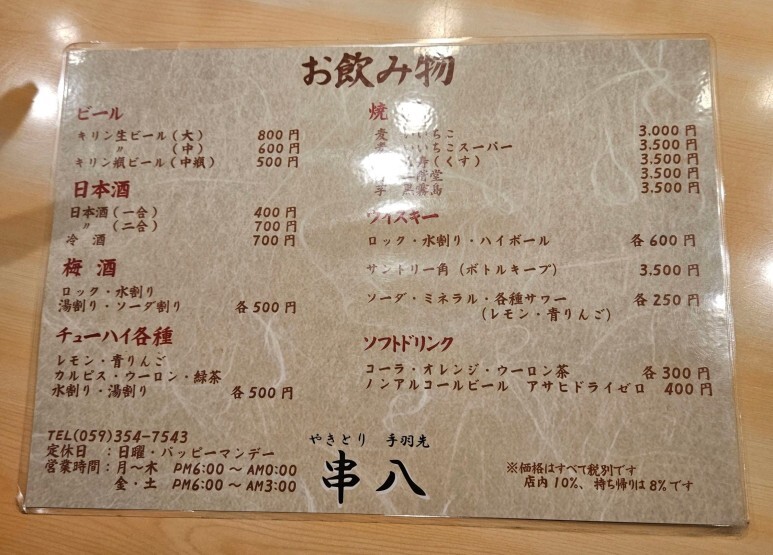 お飲み物
ビール
キリン生ビール(大) 800円
〃 (中) 600円
キリン瓶ビール(中瓶) 500円
日本酒
日本酒(一合) 400円
〃 (二合) 700円
冷 酒 700円
梅 酒
ロック・水割り
湯割り・ソーダ割り 各500円
チューハイ各種
レモン・青りんご
カルピス・ウーロン・緑茶
水割り・湯割り 各500円
TEL(059)354-7543
定休日 :日曜・パッピーマンデー
営業時間:月〜木 PM6:00〜AM0:00
金・土 PM6:00〜AM3:00
焼
麦 いいちこ 3.000円
いいちこスーパー 3.500円
寿(くす) 3.500円
二階堂 3.500円
芋 黒霧島 3.500円
ウイスキー
ロック・水割り・ハイボール 各600円
サントリー角(ボトルキープ) 3.500円
ソーダ・ミネラル・各種サワー 各250円
(レモン・青りんご)
ソフトドリンク
コーラ・オレンジ・ウーロン茶 各300円
ノンアルコールビール アサヒドライゼロ 400円
やきとり 手羽先
串八
※価格はすべて税別です
店内10%、持ち帰りは8%です